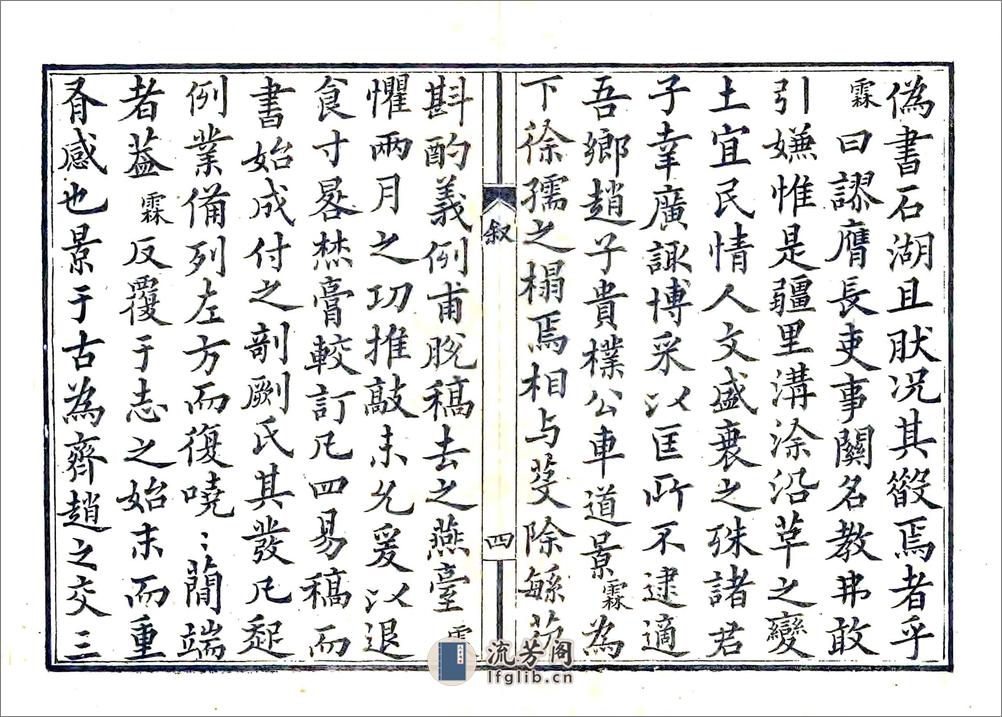 偽書石湖且肰况其焉者乎
霖曰謬膺長吏事關名教弗敢
引嫌惟是疆里溝涂沿草之變
土宜民情人文盛衰之殊諸君
子幸廣諏博采以匡所不逮適
吾鄉趙子貴樸公車道景霖為
下徐孺之榻焉相与芟除緐
叙
四
斟酌義例甫脫稿去之燕臺霖
懼兩月之功推敲未允爰以退
食寸晷焚膏較訂凡四易稿而
書始成付之剞劂氏其發凡起
例業俻列左方而復嘵〻蕳端
者葢霖反覆于志之始末而重
有感也景于古為齊趙之交三
流芳阁
lfglib.cn